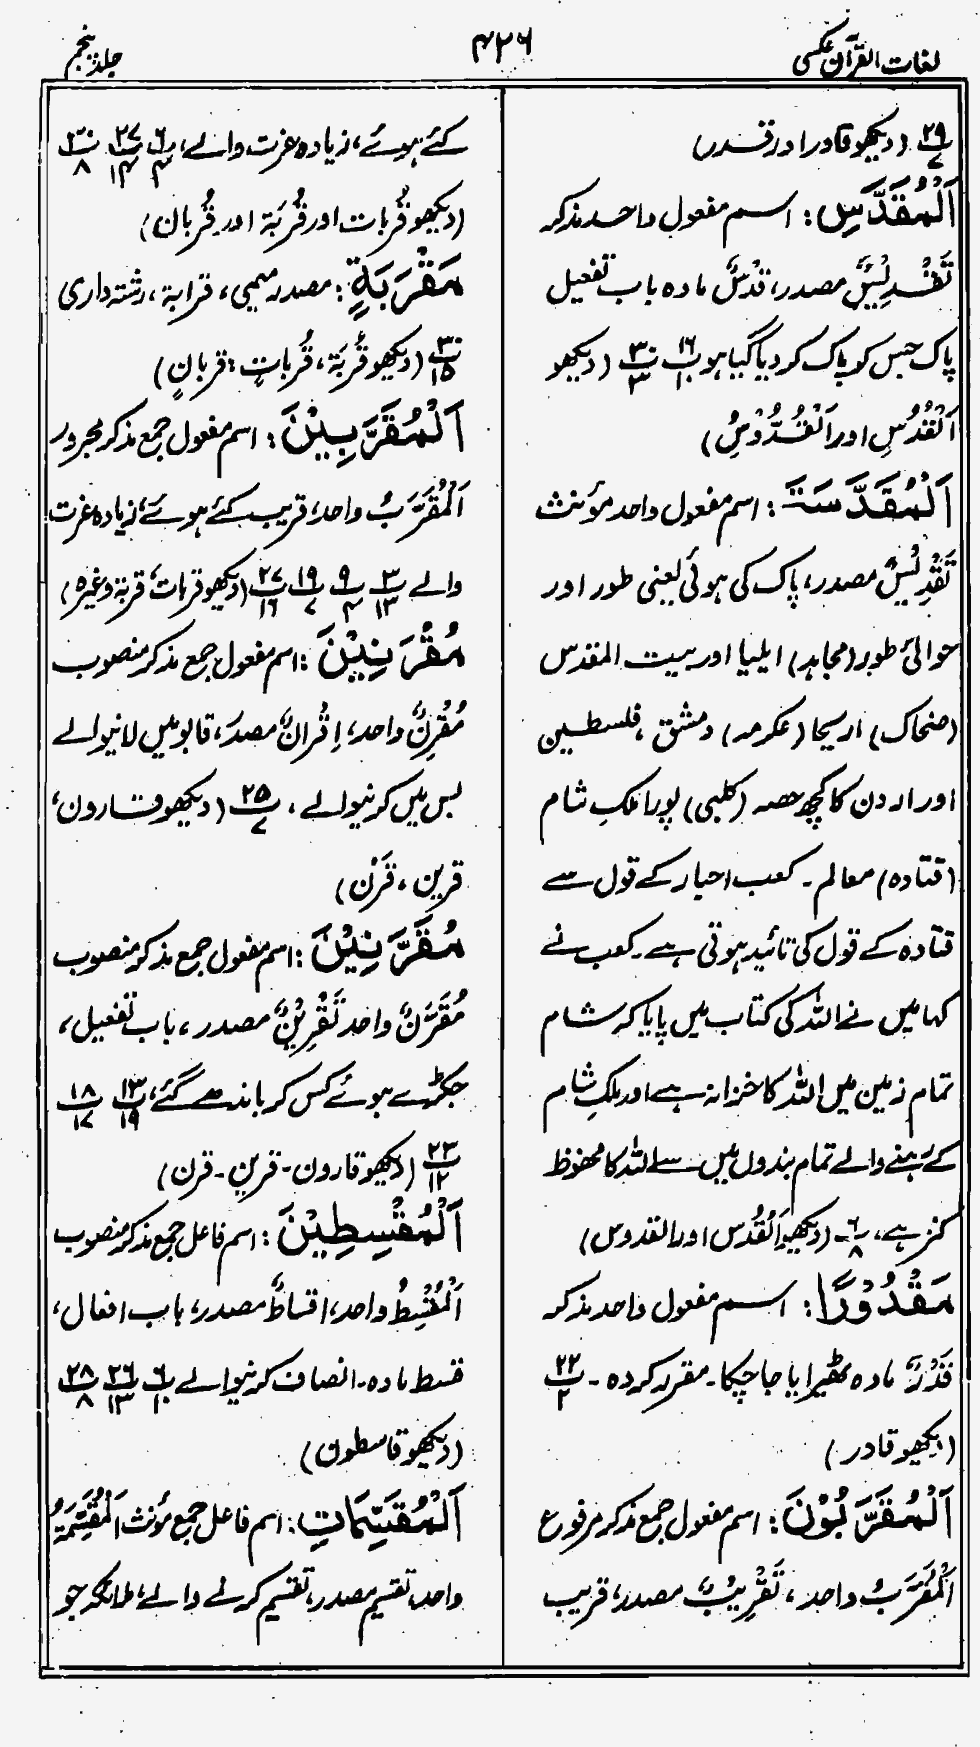 لغات القرآن عکسی
۴۲۶
جلد پنجم
۲۹/۷ (دیکھو قادر اور قدر)
اَلْمُقَدَّسِ: اسم مفعول واحد مذکر
تَقْدِیْسٌ مصدر، قُدْسٌ مادہ باب تفعیل
پاک جس کو پاک کر دیا گیا ہو ۱۶/۱۰ ۳۰/۳ (دیکھو
اَلْقُدُسِ اور اَلْقُدُّوْسُ)
اَلْمُقَدَّسَۃَ: اسم مفعول واحد مؤنث
تَقْدِیْسٌ مصدر، پاک کی ہوئی یعنی طور اور
حوالئ طور (مجاہد) ایلیا اور بیت المقدس
(ضحاک) اریحا (عکرمہ) دمشق، فلسطین
اور اردن کا کچھ حصہ (کلبی) پورا ملکِ شام
(قتادہ) معالم۔ کعب احبار کے قول سے
قتادہ کے قول کی تائید ہوتی ہے۔ کعب نے
کہا میں نے اللہ کی کتاب میں پایا کہ شام
تمام زمین میں اللہ کا خزانہ ہے اور ملکِ شام
کے رہنے والے تمام بندوں میں سے اللہ کا محفوظ
کنز ہے، ۶/۸۔ (دیکھو اَلْقُدُس اور القدوس)
مَقْدُوْرًا: اسم مفعول واحد مذکر
قَدْرٌ مادہ ٹھیرایا جا چکا۔ مقرر کردہ۔ ۲۲/۲
(دیکھو قادر)
اَلْمُقَرَّبُوْنَ: اسم مفعول جمع مذکر مرفوع
اَلْمُقَرَّبُ واحد، تَقْرِیْبٌ مصدر، قریب
کئے ہوئے، زیادہ عزت والے، ۶/۴ ۲۷/۱۴ ۳۰/۸
(دیکھو قُرُبات اور قُرْبَۃ اور قُربان)
مَقْرَبَۃٍ: مصدر میمی، قرابۃ، رشتہ داری
۳۰/۱۵ (دیکھو قُرْبَۃ، قُرُبات، قربان)
اَلْمُقَرَّبِیْنَ: اسم مفعول جمع مذکر مجرور
اَلْمُقَرَّبُ واحد، قریب کئے ہوئے، زیادہ عزت
والے ۳/۱۳ ۹/۴ ۱۹/۷ ۲۷/۱۶ (دیکھو قربات، قربۃ وغیرہ)
مُقْرَنِیْنَ: اسم مفعول جمع مذکر منصوب
مُقْرِنٌ واحد، اِقْرانٌ مصدر، قابو میں لانیوالے
بس میں کرنیوالے، ۲۵/۷ (دیکھو قارون،
قرین، قَرْن)
مُقَرَّنِیْنَ: اسم مفعول جمع مذکر منصوب
مُقَرَّنٌ واحد تَقْرِیْنٌ مصدر، باب تفعیل،
جکڑے ہوئے کس کر باندھے گئے، ۱۳/۱۹ ۱۸/۱۷
۲۳/۱۲ (دیکھو قارون۔ قرین۔ قرن)
اَلْمُقْسِطِیْنَ: اسم فاعل جمع مذکر منصوب
اَلْمُقْسِطُ واحد، اقساطٌ مصدر، باب افعال،
قسط مادہ۔ انصاف کرنیوالے ۶/۱۰ ۲۶/۱۳ ۲۸/۸
(دیکھو قاسطون)
اَلْمُقَسِّمَاتِ: اسم فاعل جمع مؤنث اَلْمُقَسِّمَۃُ
واحد، تقسیم مصدر، تقسیم کرنے والے، ملائکہ جو